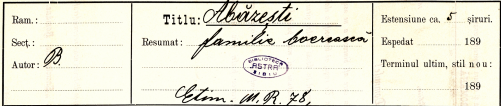 Ram.:
Secț.:
Autor: B.
Titlu: Abăzești
Resumat: familie boerească
BIBLIOTECA
"ASTRA"
SIBIU
Etim. M. R. 78,
Estensiune ca. 5 șiruri.
Espedat 189
Terminul ultim, stil nou:
189